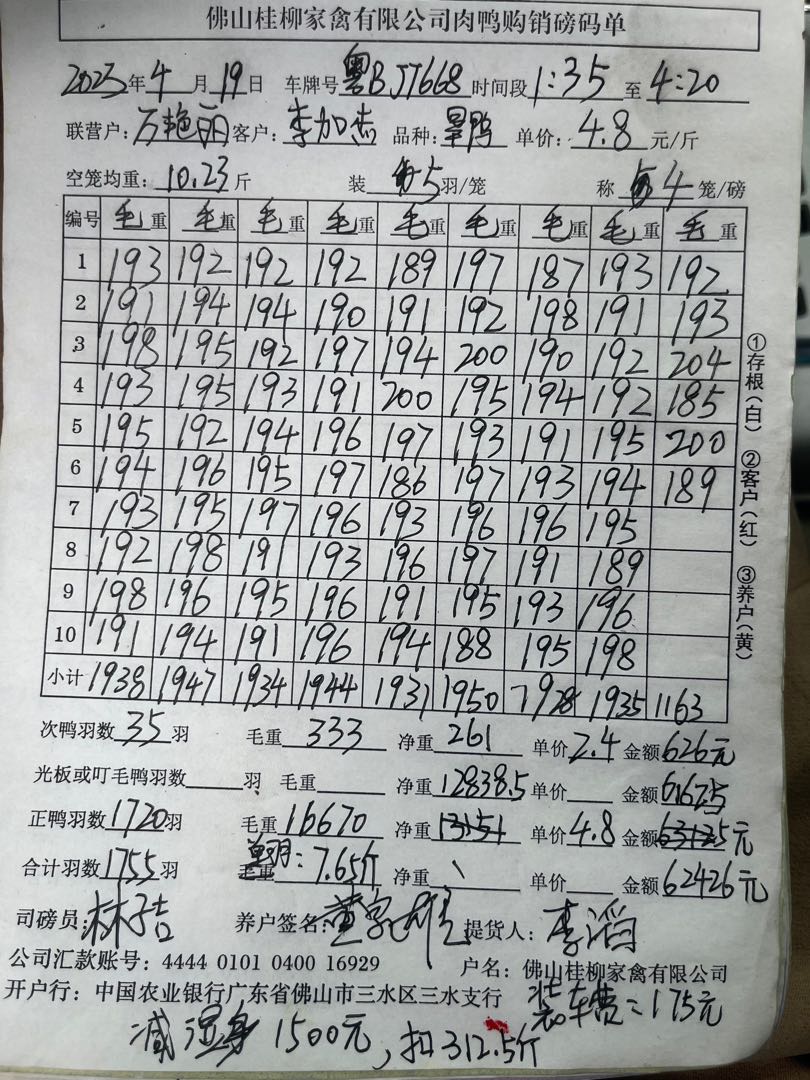 佛山桂柳家禽有限公司肉鸭购销磅码单
2023年4月19日 车牌号粤BJT668时间段1:35至4:20
联营户:万艳丽客户:李加杰 品种:旱鸭 单价:4.8元/斤
空笼均重:10.23斤 装5羽/笼 称4笼/磅
编号 毛重 毛重 毛重 毛重 毛重 毛重 毛重 毛重 毛重
1 193 192 192 192 189 197 187 193 192
2 191 194 194 190 191 192 198 191 193
3 198 195 192 197 194 200 190 192 204
4 193 195 193 191 200 195 194 192 185
5 195 192 194 196 197 193 191 195 200
6 194 196 195 197 186 197 193 194 189
7 193 195 197 196 193 196 196 195
8 192 198 191 193 196 197 191 189
9 198 196 195 196 191 195 193 196
10 191 194 191 196 194 188 195 198
小计 1938 1947 1934 1944 1931 1950 1928 1935 1163
①存根(白) ②客户(红) ③养户(黄)
次鸭羽数35羽 毛重333 净重261 单价2.4 金额626元
光板或叮毛鸭羽数 羽 毛重 净重12838.5 单价 金额61625
正鸭羽数1720羽 毛重16670 净重13151 单价4.8 金额63125元
合计羽数1755羽 毛重:7.65斤 净重 单价 金额62426元
司磅员:林子吉 养户签名: 提货人:李滔
公司汇款账号:4444 0101 0400 16929 户名:佛山桂柳家禽有限公司
开户行:中国农业银行广东省佛山市三水区三水支行 装车费=175元
减湿身1500元,扣312.5斤